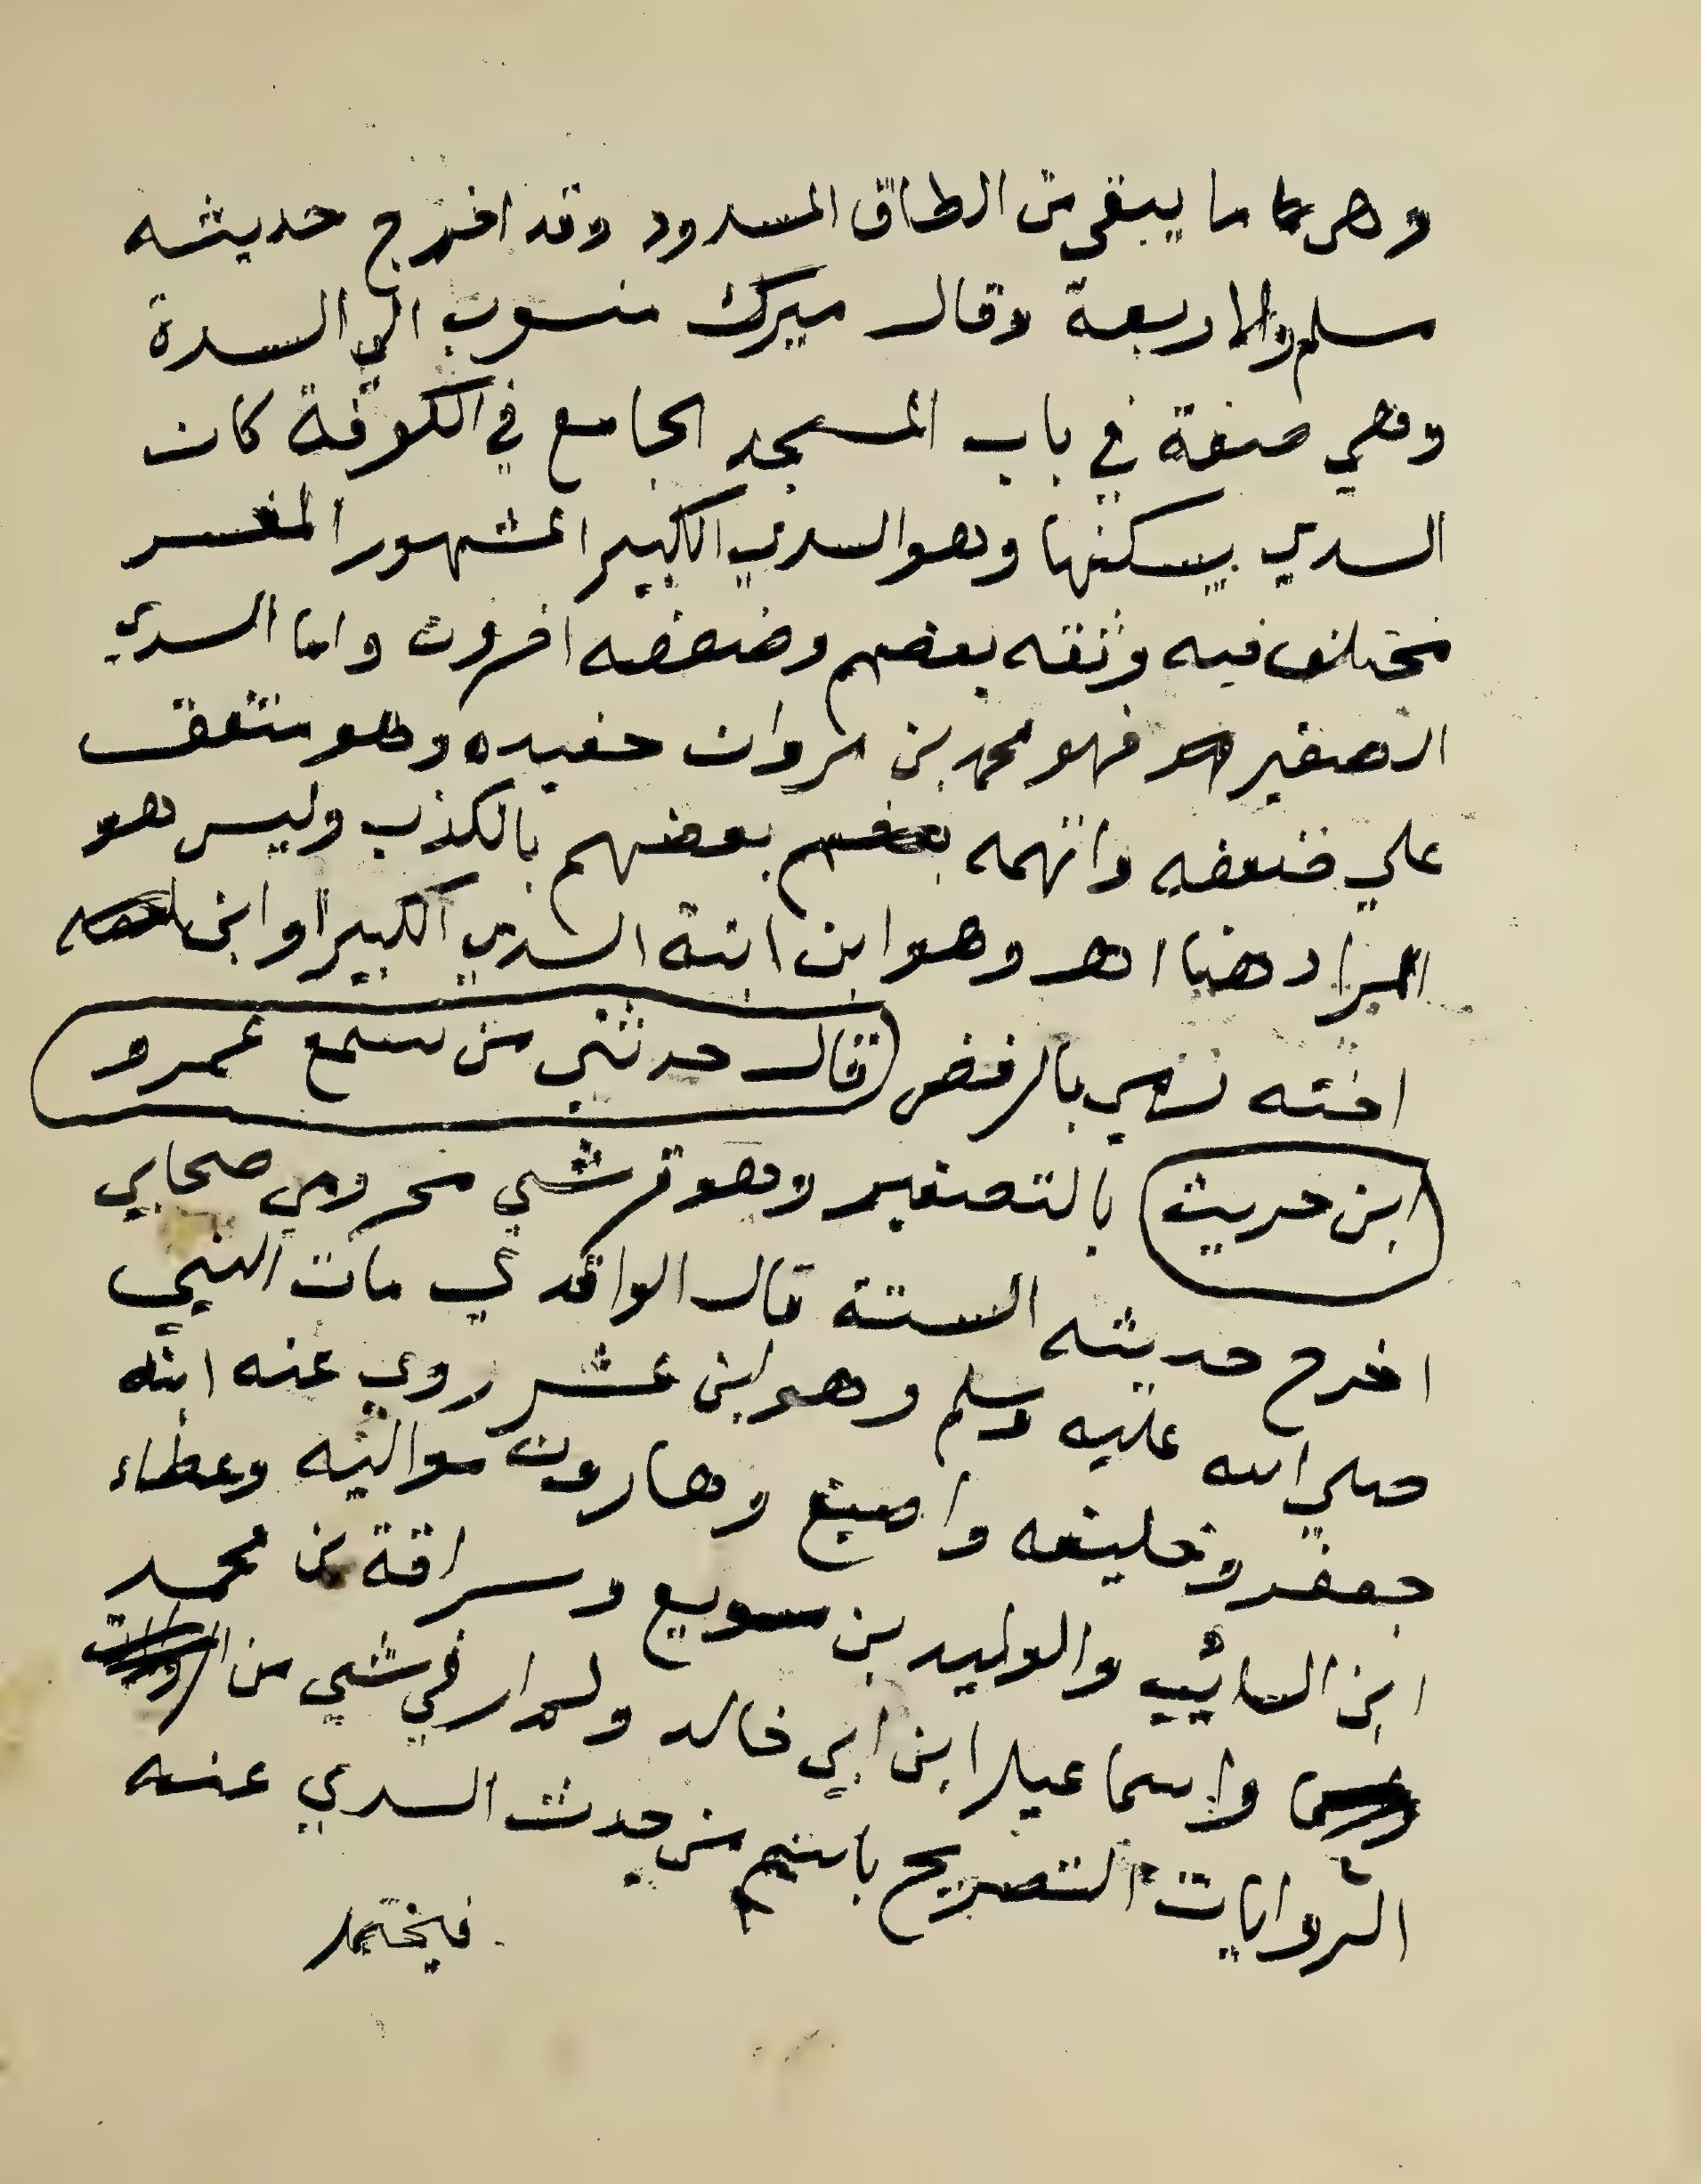 وهي ما يبقي من الطاق المسدود وقد اخرج حديثه
مسلم والاربعة وقال ميرك منسوب الي السدة
وهي صفة في باب المسجد الجامع في الكوفة كان
السدي يسكنها وهو السدي الكبير المشهور المفسر
مختلف فيه وثقه بعضهم وضعفه اخرون واما السدي
الصغير فهو محمد بن مروان حفيده وهو متفق
علي ضعفه واتهمه بعضهم بالكذب وليس هو
المراد هنا اهـ وهو ابن ابنة السدي الكبير او ابن
اخته رمي بالرفض قال حدثني من سمع عمرو
ابن حريث بالتصغير وهو قرشي مخزومي صحابي
اخرج حديثه الستة قال الواقدي مات النبي
صلي الله عليه وسلم وهو ابن عشر روي عنه ابنه
جعفر وخليفه واصبغ وهارون مواليه وعطاء
ابن السائب والوليد بن سويع وسراقة بن محمد
واسماعيل ابن ابي خالد ولم ار في شي من
الروايات التصريح باسم من حدث السدي عنه
فيحتمل